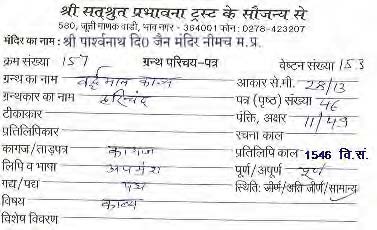 श्री सत्श्रुत प्रभावना ट्रस्ट के सौजन्य से
580, जूनी माणक वाडी, भाव नगर - 364001 फोन : 0278-423207
मंदिर का नाम : श्री पार्श्वनाथ दि0 जैन मंदिर नीमच म.प्र.
क्रम संख्या 157 ग्रन्थ परिचय-पत्र वेष्टन संख्या 153
ग्रन्थ का नाम वर्द्धमान काव्य आकार से.मी. 28/13
ग्रन्थकार का नाम हरिचंद पत्र (पृष्ठ) संख्या 46
टीकाकार पंक्ति, अक्षर 11/49
प्रतिलिपिकार रचना काल
कागज/ताड़पत्र कागज प्रतिलिपि काल 1546 वि.सं.
लिपि व भाषा अपभ्रंश पूर्ण/अपूर्ण पूर्ण
गद्य/पद्य पद्य स्थिति: जीर्ण/अति जीर्ण/सामान्य
विषय काव्य
विशेष विवरण